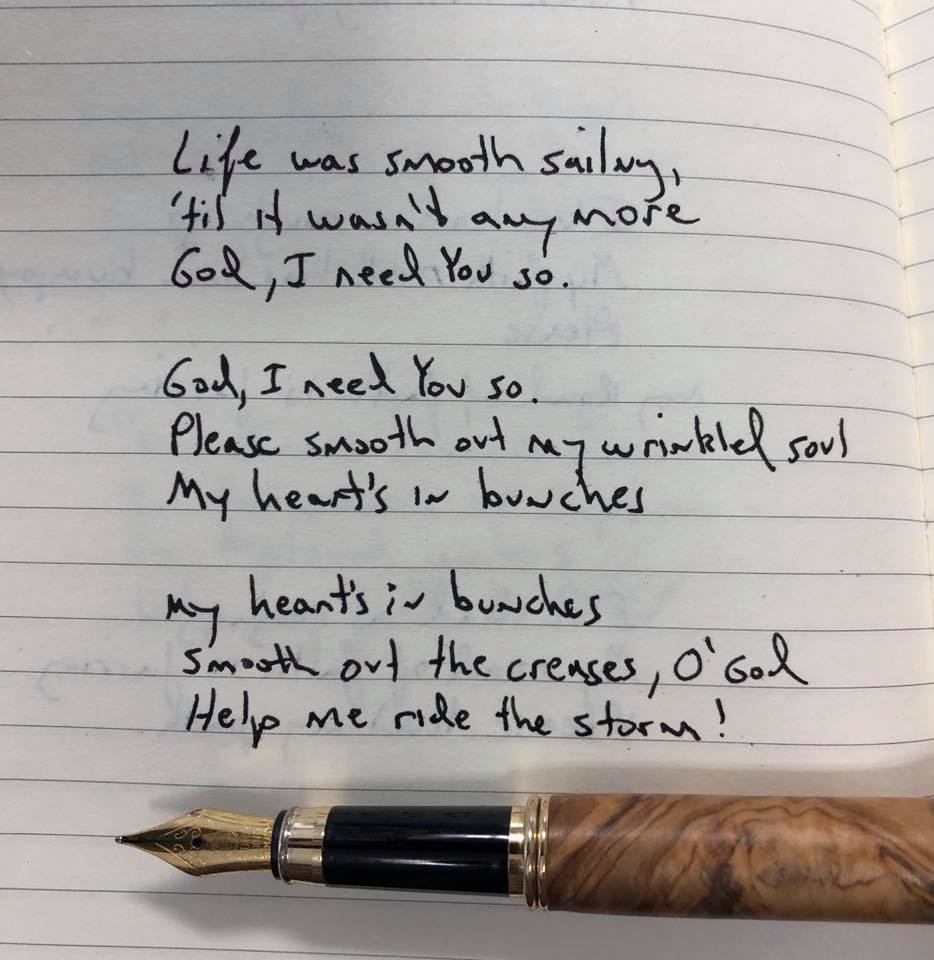 Life was smooth sailing,
'til it wasn't any more
God, I need You so.
God, I need You so.
Please smooth out my wrinkled soul
My heart's in bunches
My heart's in bunches
Smooth out the creases, O' God
Help me ride the storm!